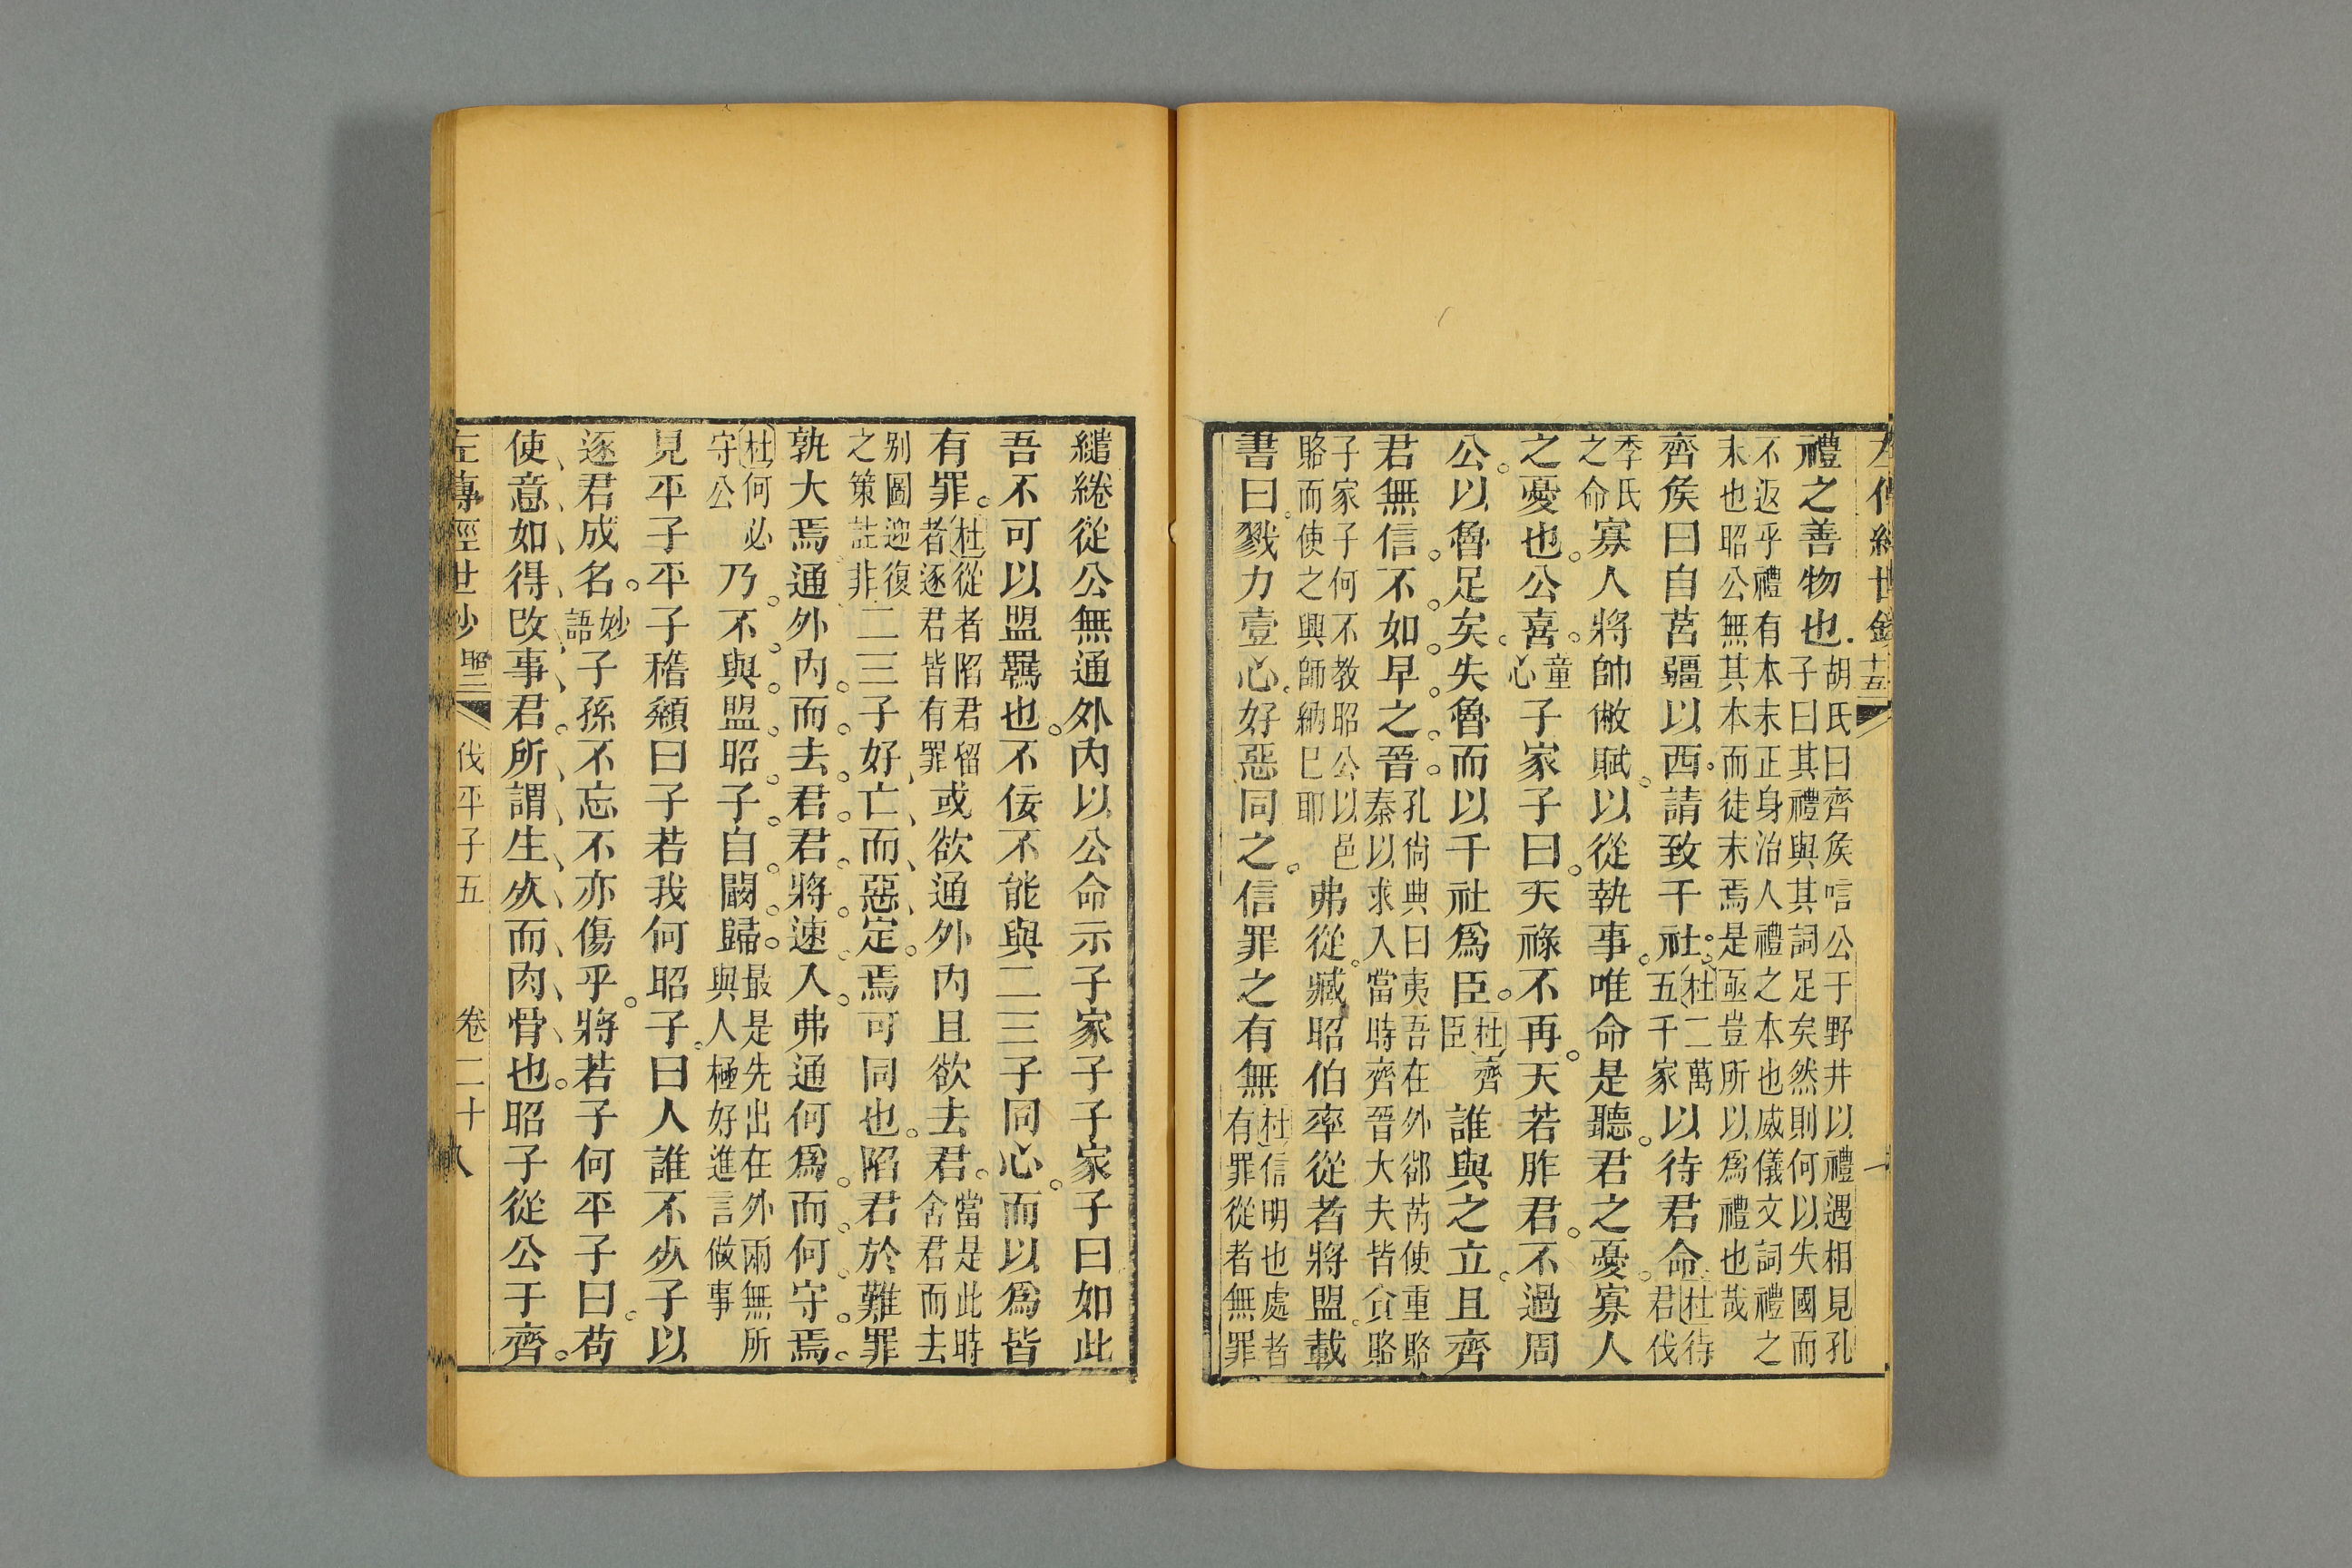 禮之善物也胡氏曰齊矦唁公于野井以禮遇相見孔子曰其禮與其詞足矣然則何以失國而
不返乎禮有本末正身治人禮之本也威儀文詞禮之末也昭公無其本而徒末焉是亟豈所以爲禮也哉
齊矦曰自莒疆以西請致千社杜二萬五千家以待君命杜待君伐
季氏之命寡人將帥敝賦以從執事唯命是聽君之憂寡人
之憂也公喜童心子家子曰天祿不再天若胙君不過周
公以魯足矣失魯而以千社爲臣杜齊臣誰與之立且齊
君無信不如早之晉孔尙典曰夷吾在外郤芮使重賂秦以求入當時齊晉大夫皆貪賂
子家子何不教昭公以邑賂而使之興師納已耶弗從臧昭伯率從者將盟載
書曰戮力壹心好惡同之信罪之有無杜信明也處者有罪從者無罪
繾綣從公無通外内以公命示子家子子家子曰如此
吾不可以盟羈也不佞不能與二三子同心而以爲皆
有罪杜從者陷君留者逐君皆有罪或欲通外内且欲去君當是此時舍君而去
别圖迎復之策註非二三子好亡而惡定焉可同也陷君於難罪
孰大焉通外内而去君君將速入弗通何爲而何守焉
杜何必守公乃不與盟昭子自闞歸最是先出在外兩無所與人極好進言做事
見平子平子稽顙曰子若我何昭子曰人誰不㱙子以
逐君成名妙語子孫不忘不亦傷乎將若子何平子曰苟
使意如得改事君所謂生㱙而肉骨也昭子從公于齊
左傳經世鈔 昭二 伐平子五 卷二十 八